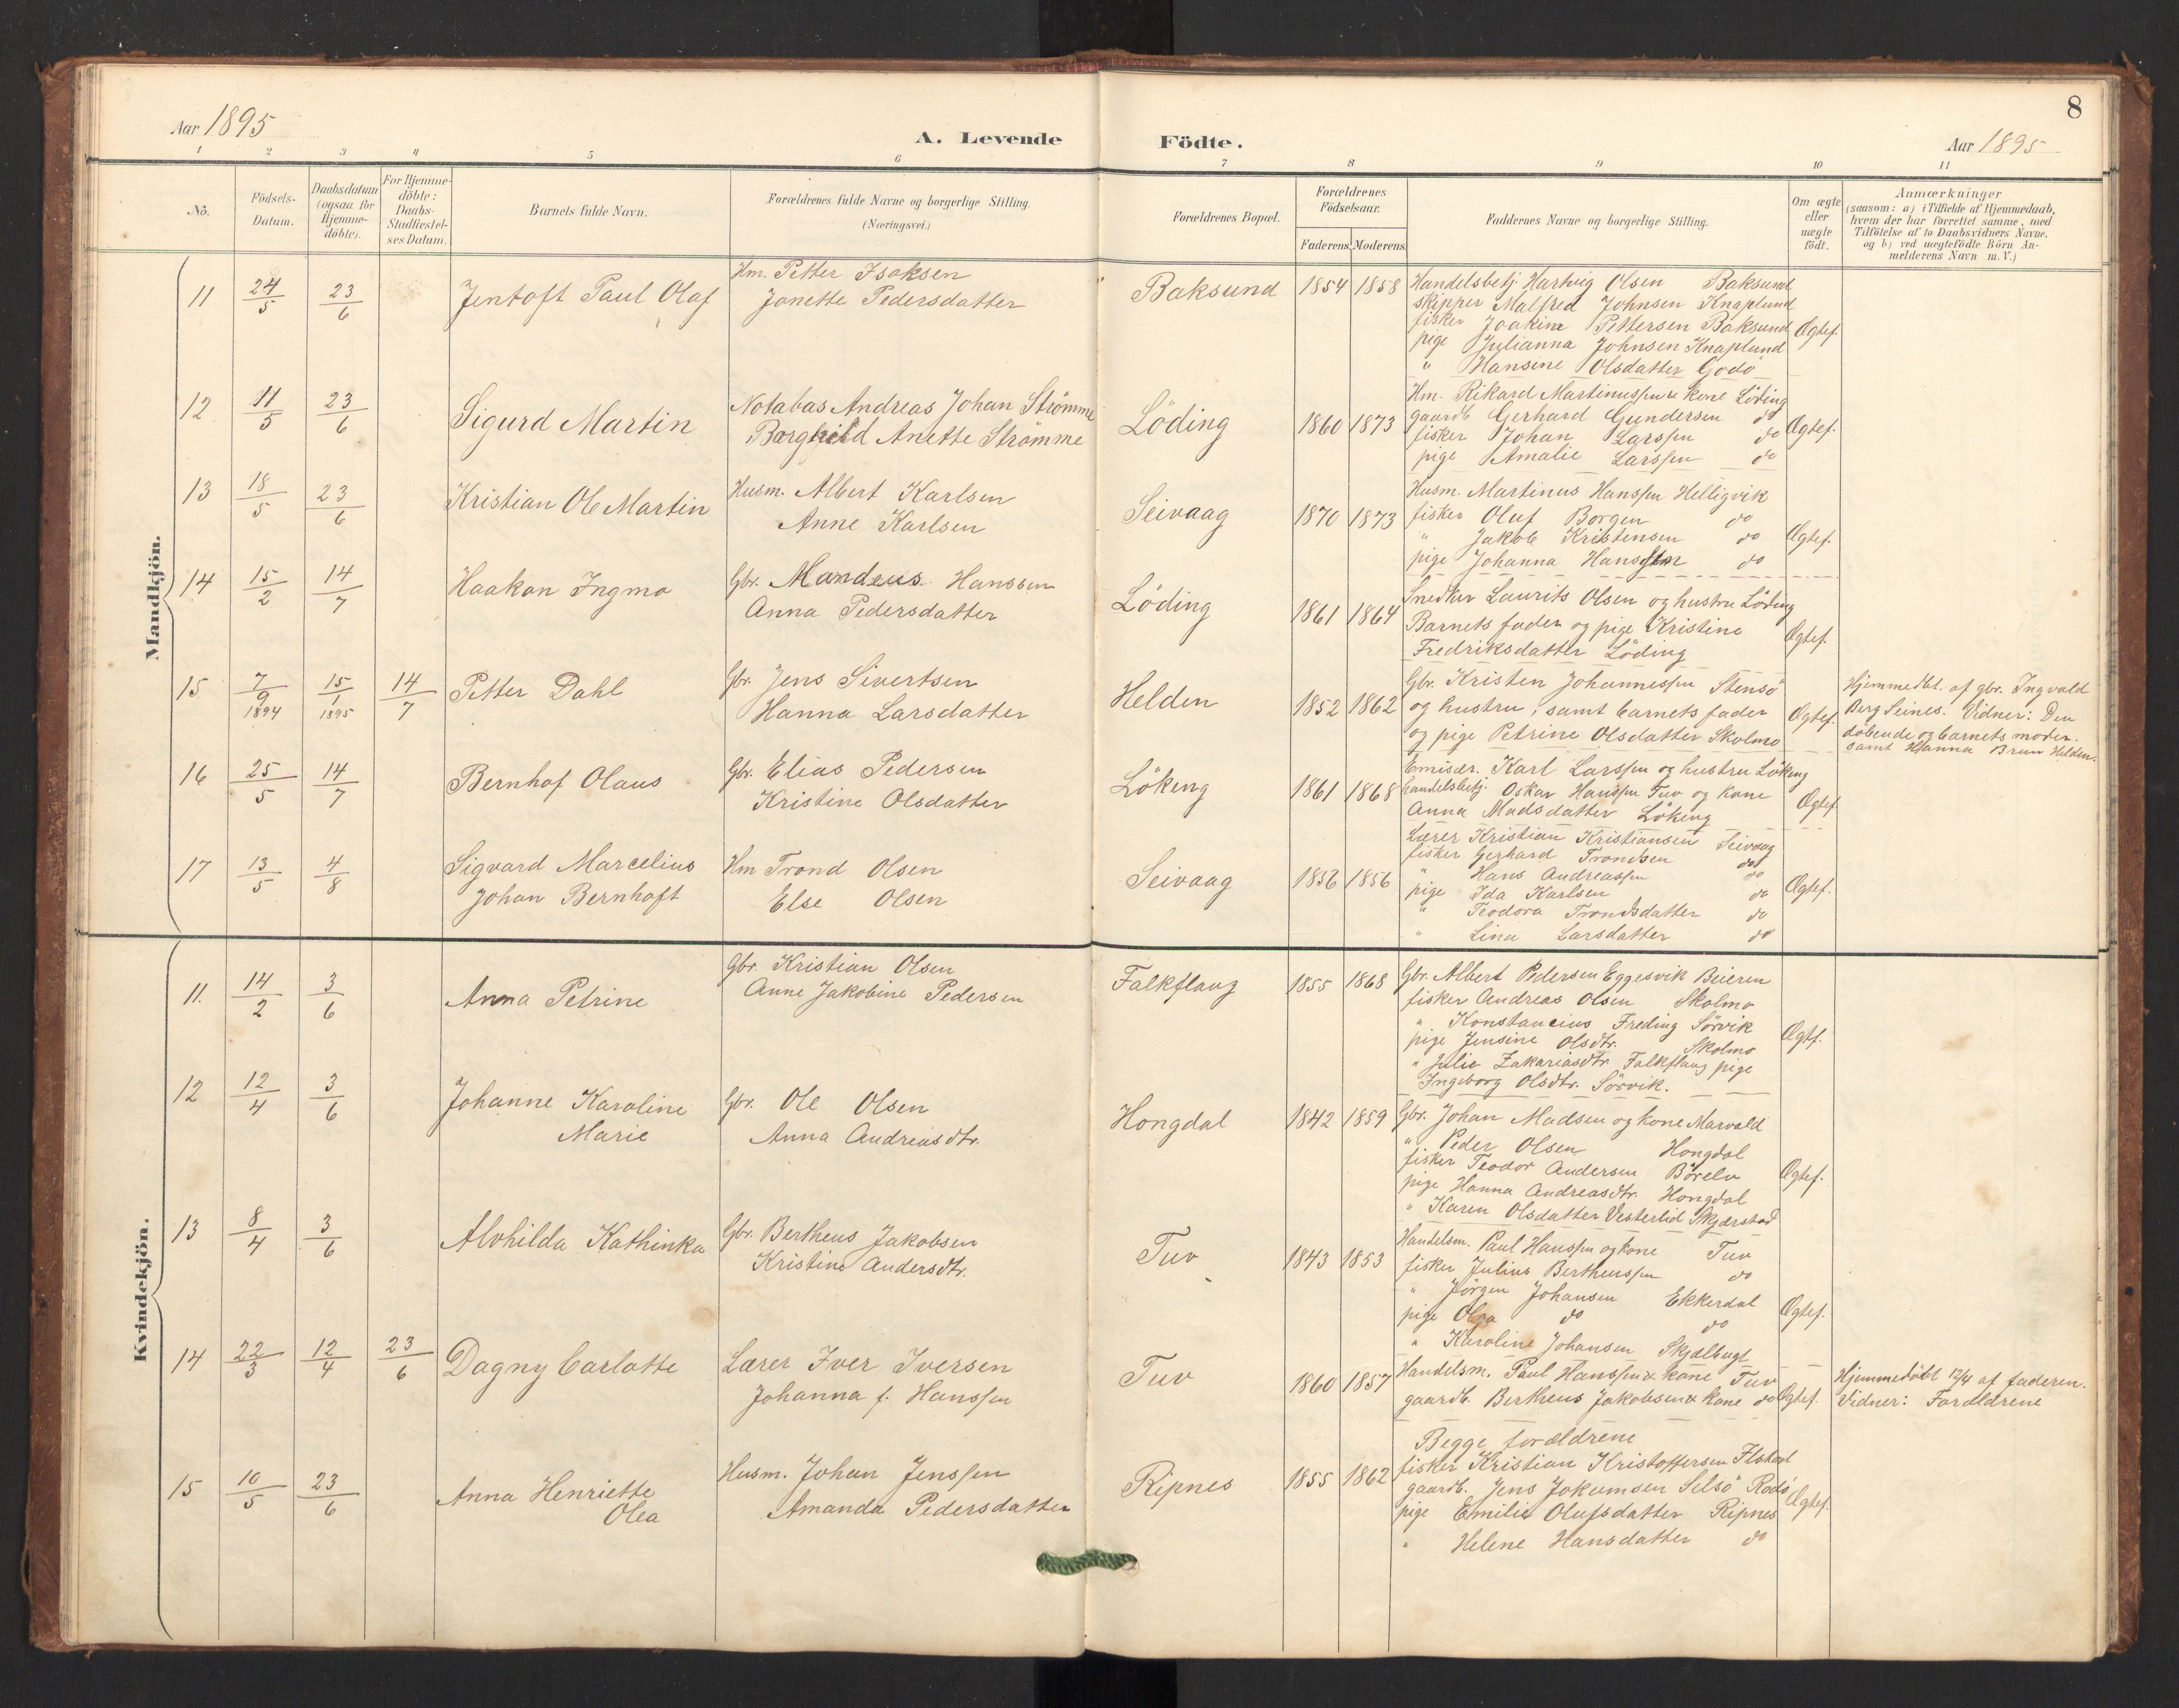 8
Aar 1895
A. Levende Födte.
Aar 1895
1 2 3 4 5 6 7 8 9 10 11
No.
Födsels-Datum.
Daabsdatum (ogsaa for Hjemme-döbte).
For Hjemme-döbte: Daabs-Stadfæstel-ses Datum.
Barnets fulde Navn.
Forældrenes fulde Navne og borgerlige Stilling.
(Næringsvei.)
Forældrenes Bopæl.
Forældrenes Födselsaar.
Faderens. Moderens.
Faddernes Navne og borgerlige Stilling.
Om ægte eller uægte födt.
Anmærkninger
(saasom: a) i Tilfælde af Hjemmedaab,
hvem der har forrettet samme, med
Tilföielse af to Daabsvidners Navne.
og b) ved uægtefödte Börn An-
melderens Navn m. V.)
Mandkjön.
11 24/5 23/6 Jentoft Paul Olaf
Hm. Petter Isaksen
Jonette Pedersdatter
Baksund 1854 1858
Handelsbetj. Hartvig Olsen Baksund
skipper Malfred Johnsen Knaplund
fisker Joakim Pettersen Baksund
pige Julianna Johnsen Knaplund
" Hansine Olsdatter Godö
Ægtef.
12 11/5 23/6 Sigurd Martin
Notabas Andreas Johan Strömme
Borghild Anette Strömme
Löding 1860 1873
Hm. Rikard Martinussen & kone Löding
gaardb. Gerhard Gundersen do
fisker Johan Larssen do
pige Amalie Larssen do
Ægtef.
13 18/5 23/6 Kristian Ole Martin
Husm. Albert Karlsen
Anne Karlsen
Seivaag 1870 1873
Husm. Martinus Hanssen Helligvik
fisker Oluf Borgen do
" Jakob Kristensen do
pige Johanna do
Ægtef.
14 15/2 14/7 Haakon Ingmo
Gbr. Mandeus Hanssen
Anna Pedersdatter
Löding 1861 1864
Snedker Laurits Olsen og hustru Löding
Barnets fader og pige Kristine
Fredriksdatter Löding
Ægtef.
15 7/9 1894 15/1 1895 14/7 Petter Dahl
Gbr. Jens Sivertsen
Hanna Larsdatter
Helden 1852 1862
Gbr. Kristen Johannessen Stensö
og hustru, samt barnets fader
og pige Petrine Olsdatter Skolmo
Ægtef.
Hjemmedbt. af gbr. Ingvald
Berg Seines. Vidner: Den
döbende og barnets moder.
samt Hanna Brun Helden.
16 25/5 14/7 Bernhof Olaus
Gbr. Elias Pedersen
Kristine Olsdatter
Lökeng 1861 1868
Emisær. Karl Larssen og hustru Löking
handelsbetj. Oskar Hanssen Tuv og kone
Anna Madsdatter Löking
Ægtef.
17 13/5 4/8 Sigvard Marcelius
Johan Bernhoft
Hm Trond Olsen
Else Olsen
Seivaag 1856
Lærer Kristian Kristiansen Seivaag
fisker Gerhard Trondsen do
" Hans Andreassen do
pige Ida Karlsen do
" Teodora Trondsdatter do
" Lina Larsdatter do
Ægtef.
Kvindekjön.
11. 14/2 3/6 Anna Petrine
Gbr. Kristian Olsen
Anne Jakobine Pedersen
Falkflaug 1855 1868
Gbr. Albert Pedersen Eggesvik Beieren
fisker Andreas Olsen Skolmo
" Konstancius Freding Sörvik
pige Jensine Olsdtr. Skolmo
" Julie Zakariasdtr. Falkflaug pige
Ingeborg Olsdtr. Sörvik.
Ægtf.
12 12/4 3/6 Johanne Karoline
Marie
Gbr. Ole Olsen
Anna Andreasdtr.
Hongdal 1842 1859
Gbr. Johan Madsen og kone Marvold
" Peder Olsen Hongdal
fisker Teodor Andersen Börelv
pige Hanna Andreasdtr. Hongdal
" Karen Olsdatter Vesterlid Skjærstad
Ægtef.
13 8/4 3/6 Alvhilda Kathinka
Gbr. Bertheus Jakobsen
Kristine Andersdtr.
Tuv 1843 1853
Handelsm. Paul Hanssen og kone Tuv
fisker Julius Bertheussen do
" Jörgen Johansen Ekkerdal
pige Olga do do
" Karoline Johansen Skjælbugt
Ægtef.
14 22/3 12/4 23/6 Dagny Carlotte
Lærer Iver Iversen
Johanna f. Hanssen
Tuv 1860 1857
Handelsm. Paul Hanssen & kone Tuv
gaardb. Bertheus Jakobsen & kone do
Begge forældrene
Ægtef.
Hjemmedöbt 12/4 af faderen.
Vidner: Forældrene
15 10/5 23/6 Anna Henriette
Olea
Husm. Johan Jenssen
Amanda Pedersdatter
Ripnes 1855 1862
fisker Kristian Kristoffersen
gaardb. Jens Jokumsen Selsö Rödö
pige Emilie Olufsdatter Ripnes
" Helene Hansdatter do
Ægtef.